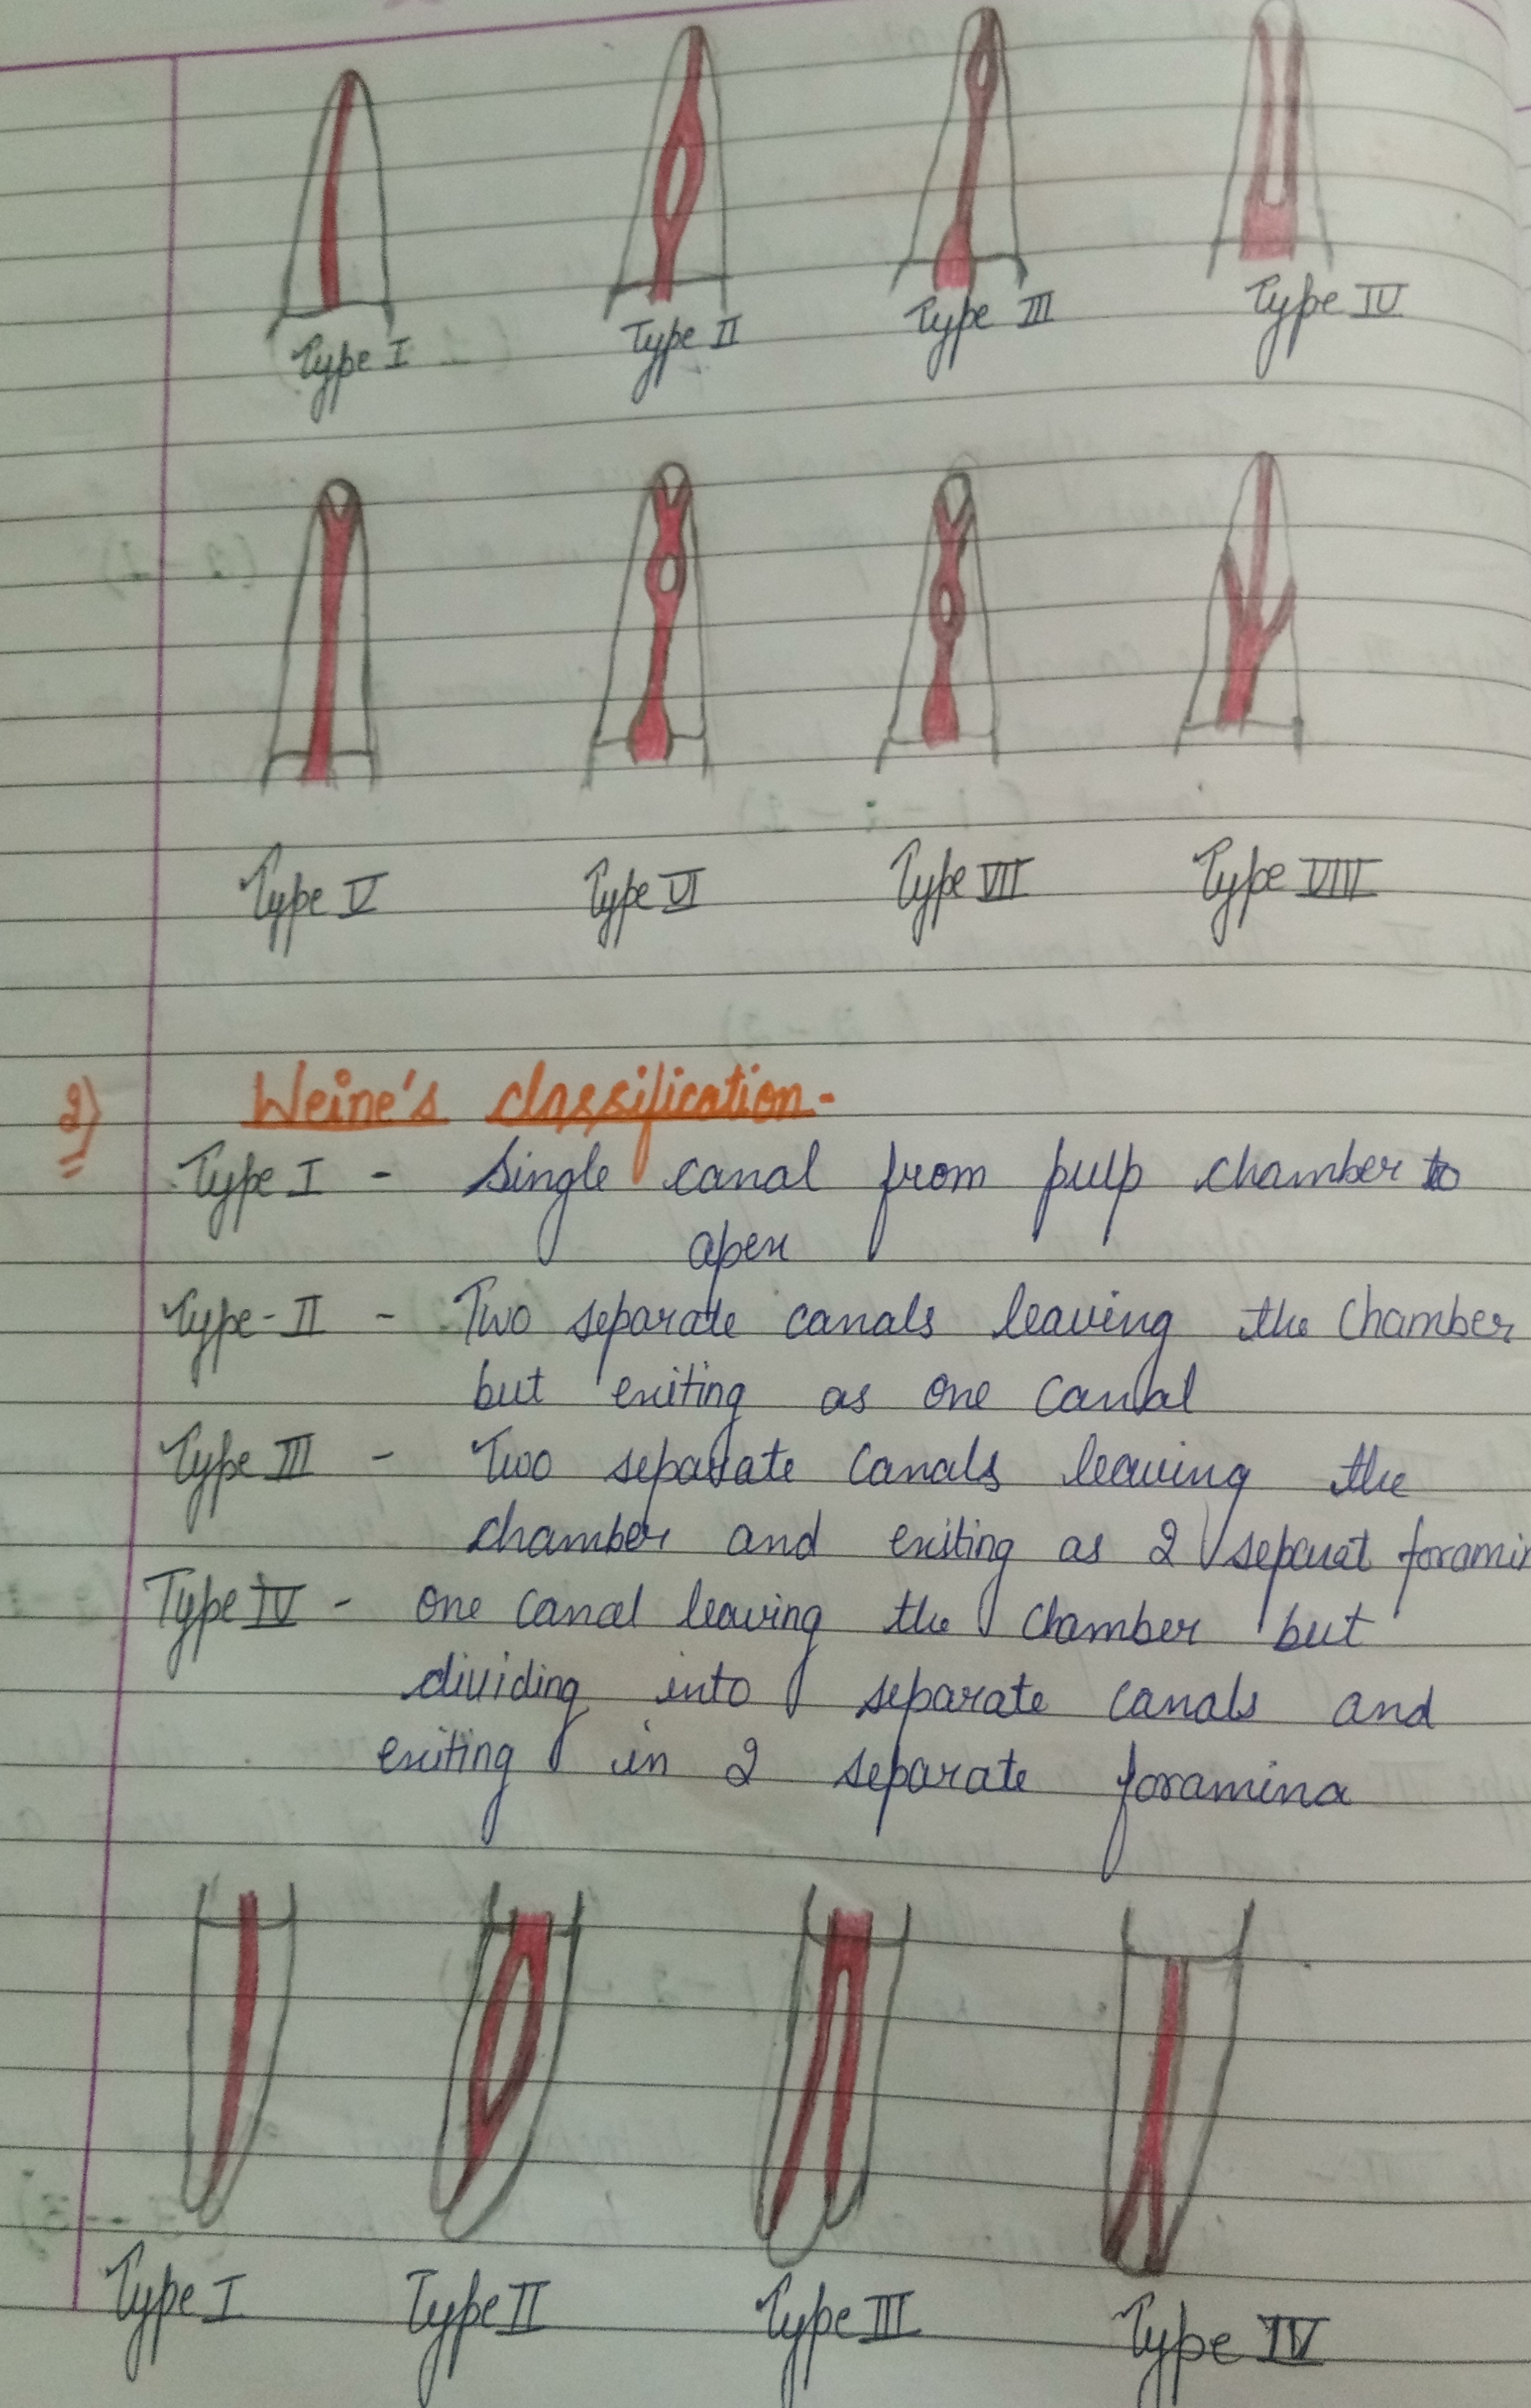 Type I
Type II
Type III
Type IV
Type V
Type VI
Type VII
Type VIII
2) Weine's classification-
Type I - Single canal from pulp chamber to
apex
Type-II - Two separate canals leaving the chamber
but exiting as one canal
Type III - Two separate canals leaving the
chamber and exiting as 2 separat foramin
Type IV - one canal leaving the chamber but
dividing into separate canals and
exiting in 2 separate foramina
Type I
Type II
Type III
Type IV